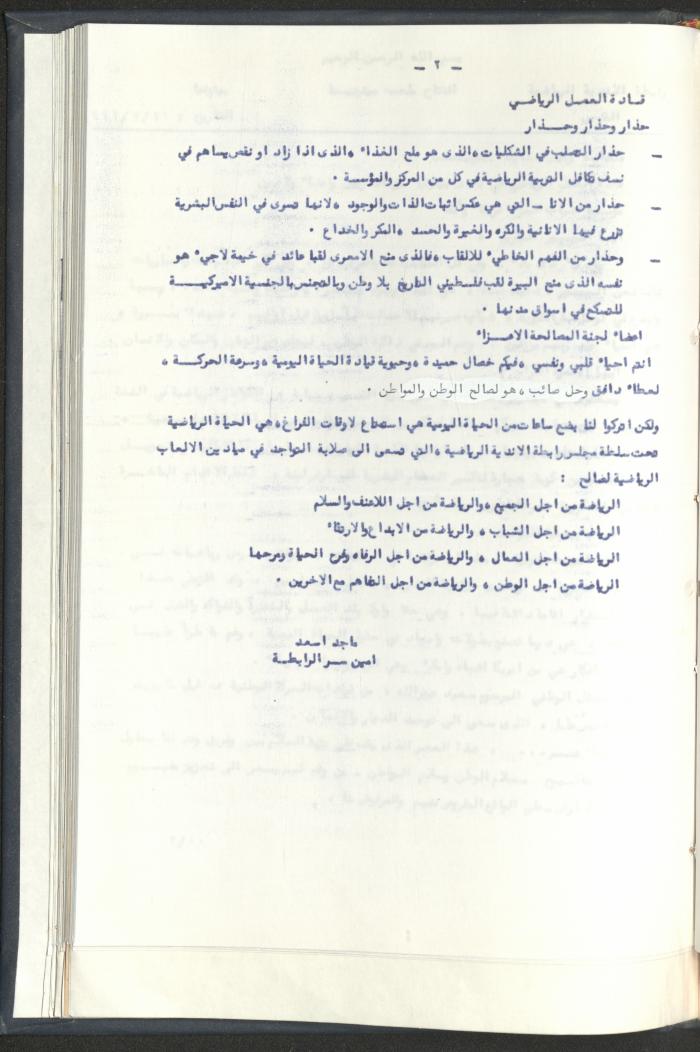 — ٢ —
قادة العمل الرياضي
حذار وحذار وحذار
— حذار التصلب في الشكليات، الذي هو ملح الغذاء، الذي اذا زاد او نقص يساهم في
نسف تكافل التربية الرياضية في كل من المركز والمؤسسة .
— حذار من الانا — التي هي عكس اثبات الذات والوجود، لانها تسرى في النفس البشرية
تزرع فيها الانانية والكره والغيرة والحسد، المكر والخداع .
— وحذار من الفهم الخاطيء للالقاب، فالذى منح الاسرى لقبا عائد في خيمة لاجيء هو
نفسه الذى منح البيرة لقب فلسطيني التاريخ بلا وطن وبالتجنس بالجنسية الاميركية
للتسكع في اسواق مدنها .
اعضاء لجنة المصالحة الاعزاء
انتم احياء قلبي ونفسي، فيكم خصال حميدة، وحيوية قيادة الحياة اليومية، وسرعة الحركة،
لعطاء دافق وحل صائب، هو لصالح الوطن والمواطن .
ولكن اتركوا لنا بضع ساعات من الحياة اليومية هي استمتاع لاوقات الفراغ، هي الحياة الرياضية
تحت سلطة مجلس رابطة الاندية الرياضية، التي تسعى الى صلابة التواجد في ميادين الالعاب
الرياضية لصالح :
الرياضة من اجل الجميع، والرياضة من اجل اللاعنف والسلام
الرياضة من اجل الشباب، والرياضة من الابداع والارتقاء
الرياضة من اجل العمال، والرياضة من اجل الرفاه وفرح الحياة ومرحها
الرياضة من اجل الوطن، والرياضة من اجل التفاهم مع الاخرين .
ماجد اسعد
امين سر الرابطة